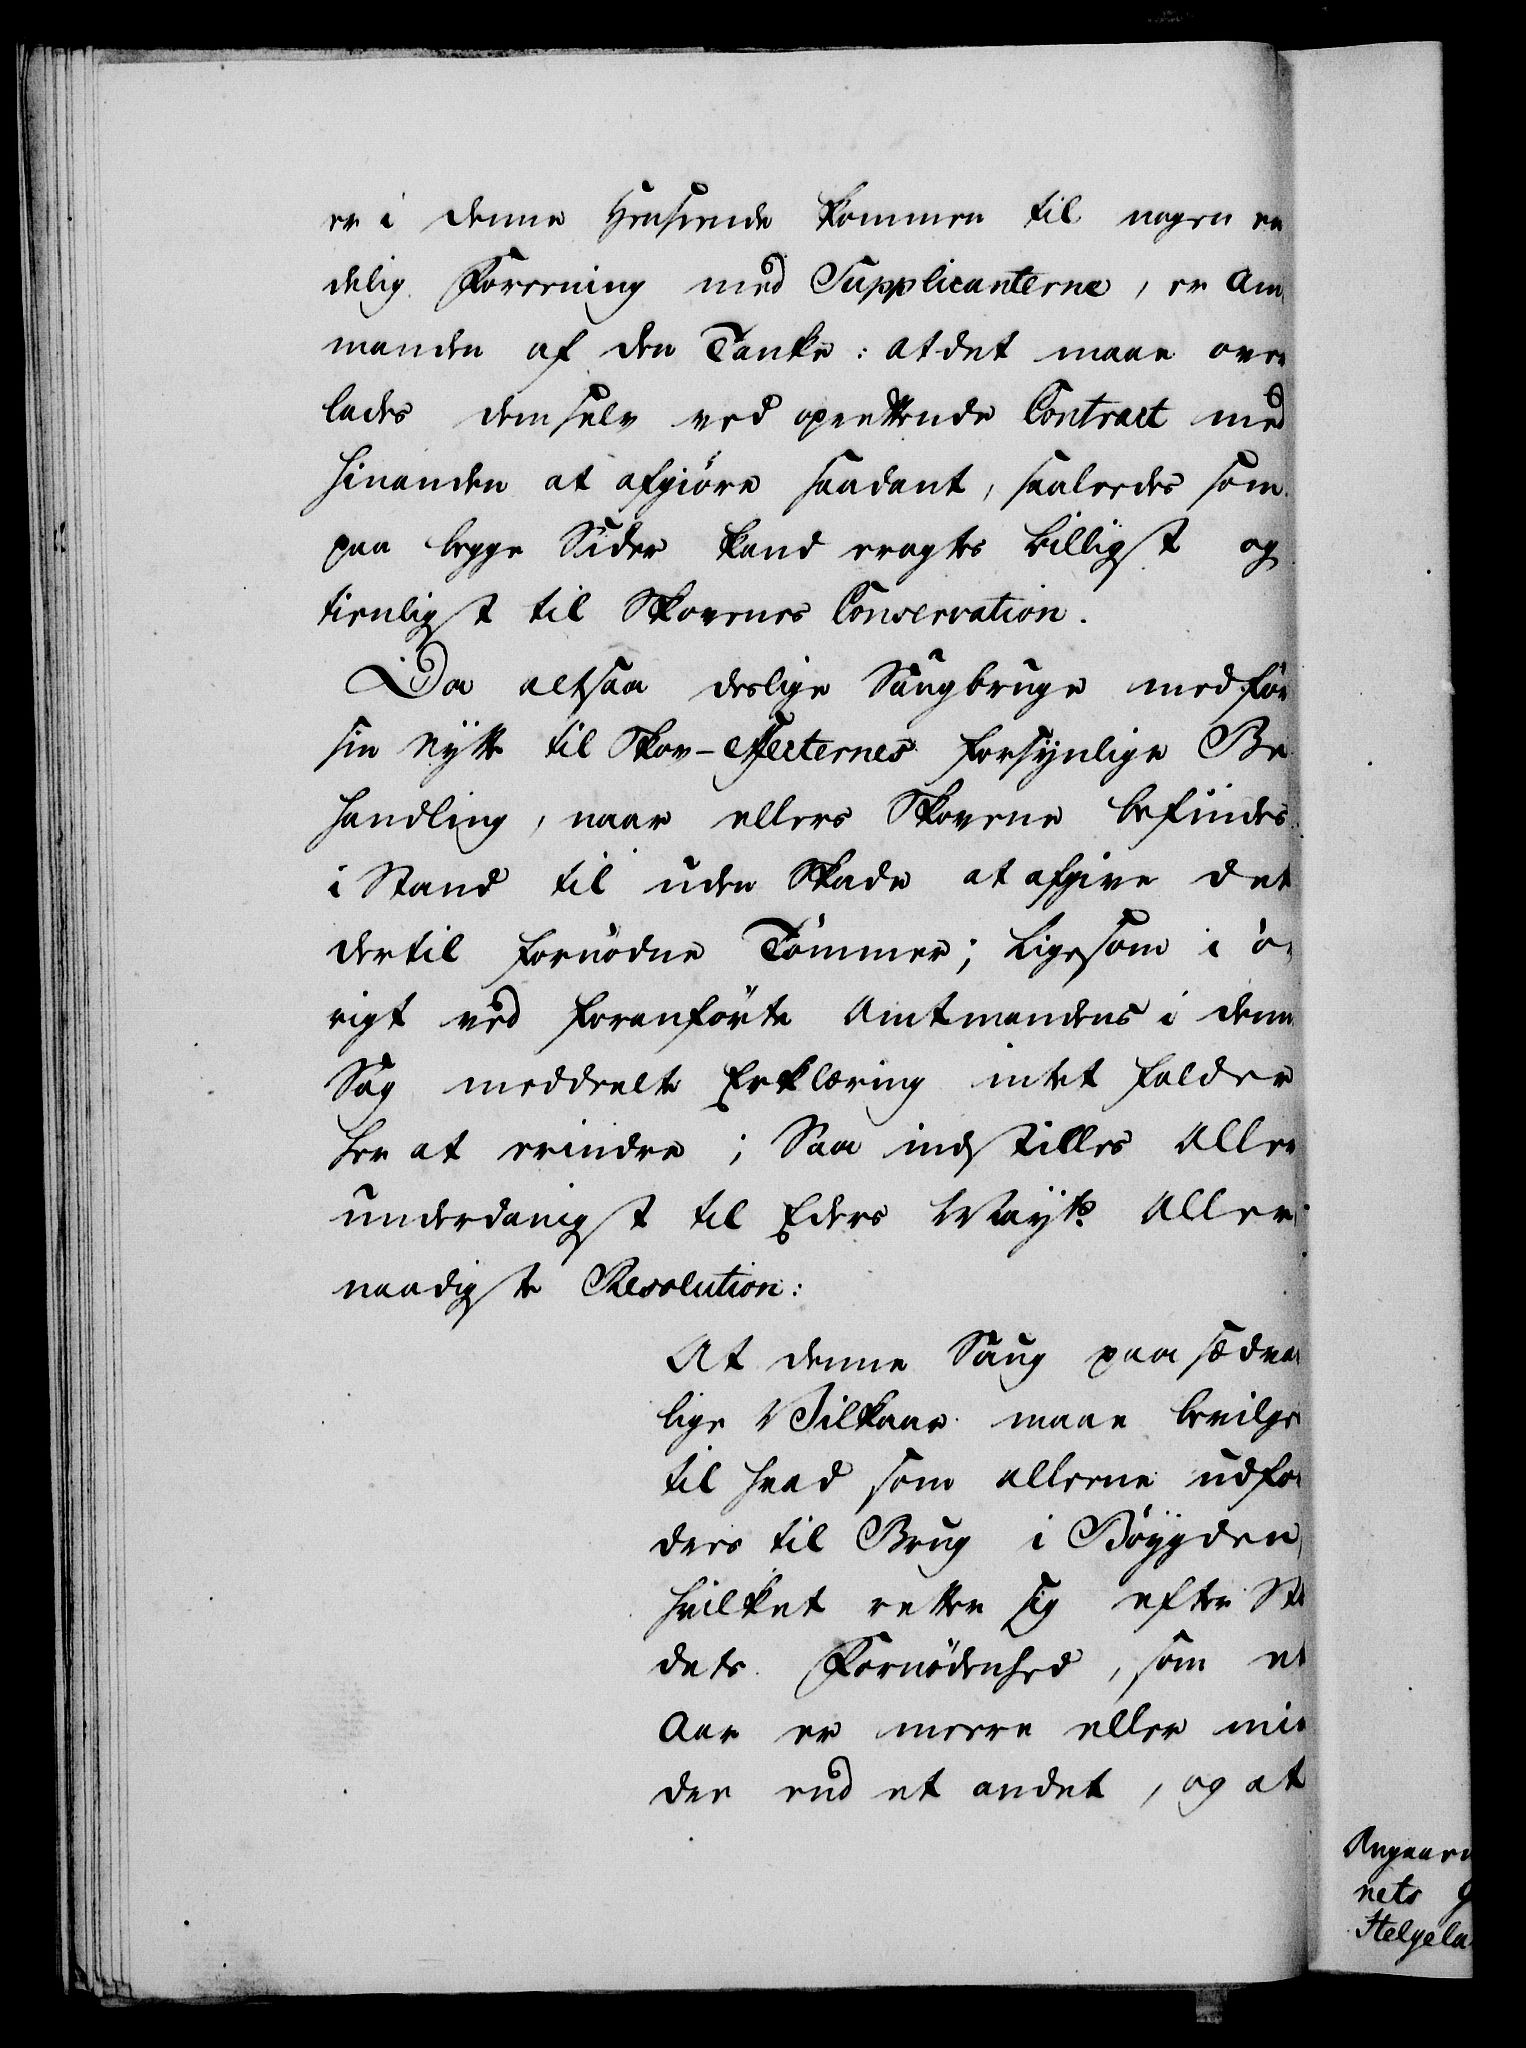 er i denne Henseende kommen til nogen en
delig Foreening med Supplicanterne, er Am
manden af den Tanke: at det maae over
lades dem selv ved oprettende Contract med
hinanden at afgiöre saadant, saaleedes som
paa begge Sider kand eragtes billigst og
tienligst til Skovenes Conservation.
Da altsaa deslige Saugbruge medför
sin Nytte til Skov-Effecternes forsynlige Be
handling, naar ellers Skovene befindes
i Stand til uden Skade at afgive det
dertil fornödne Tömmer; Ligesom i ö
rigt ved foranförte Amtmandens i denne
Sag meddeelte Erklæring intet falder
her at erindre; Saa indstilles Aller
underdanigst til Eders Mayts Aller
naadigste Resolution:
At denne Saug paa sædvan
lige Vilkaar maae bevilges
til hvad som alleene udfor
dres til Brug i Böygden,
hvilket retter sig efter Ste
dets Fornödenhed, som et
Aar er meere eller min
dre end et andet, og at
Angaaen
nets G
Helgela